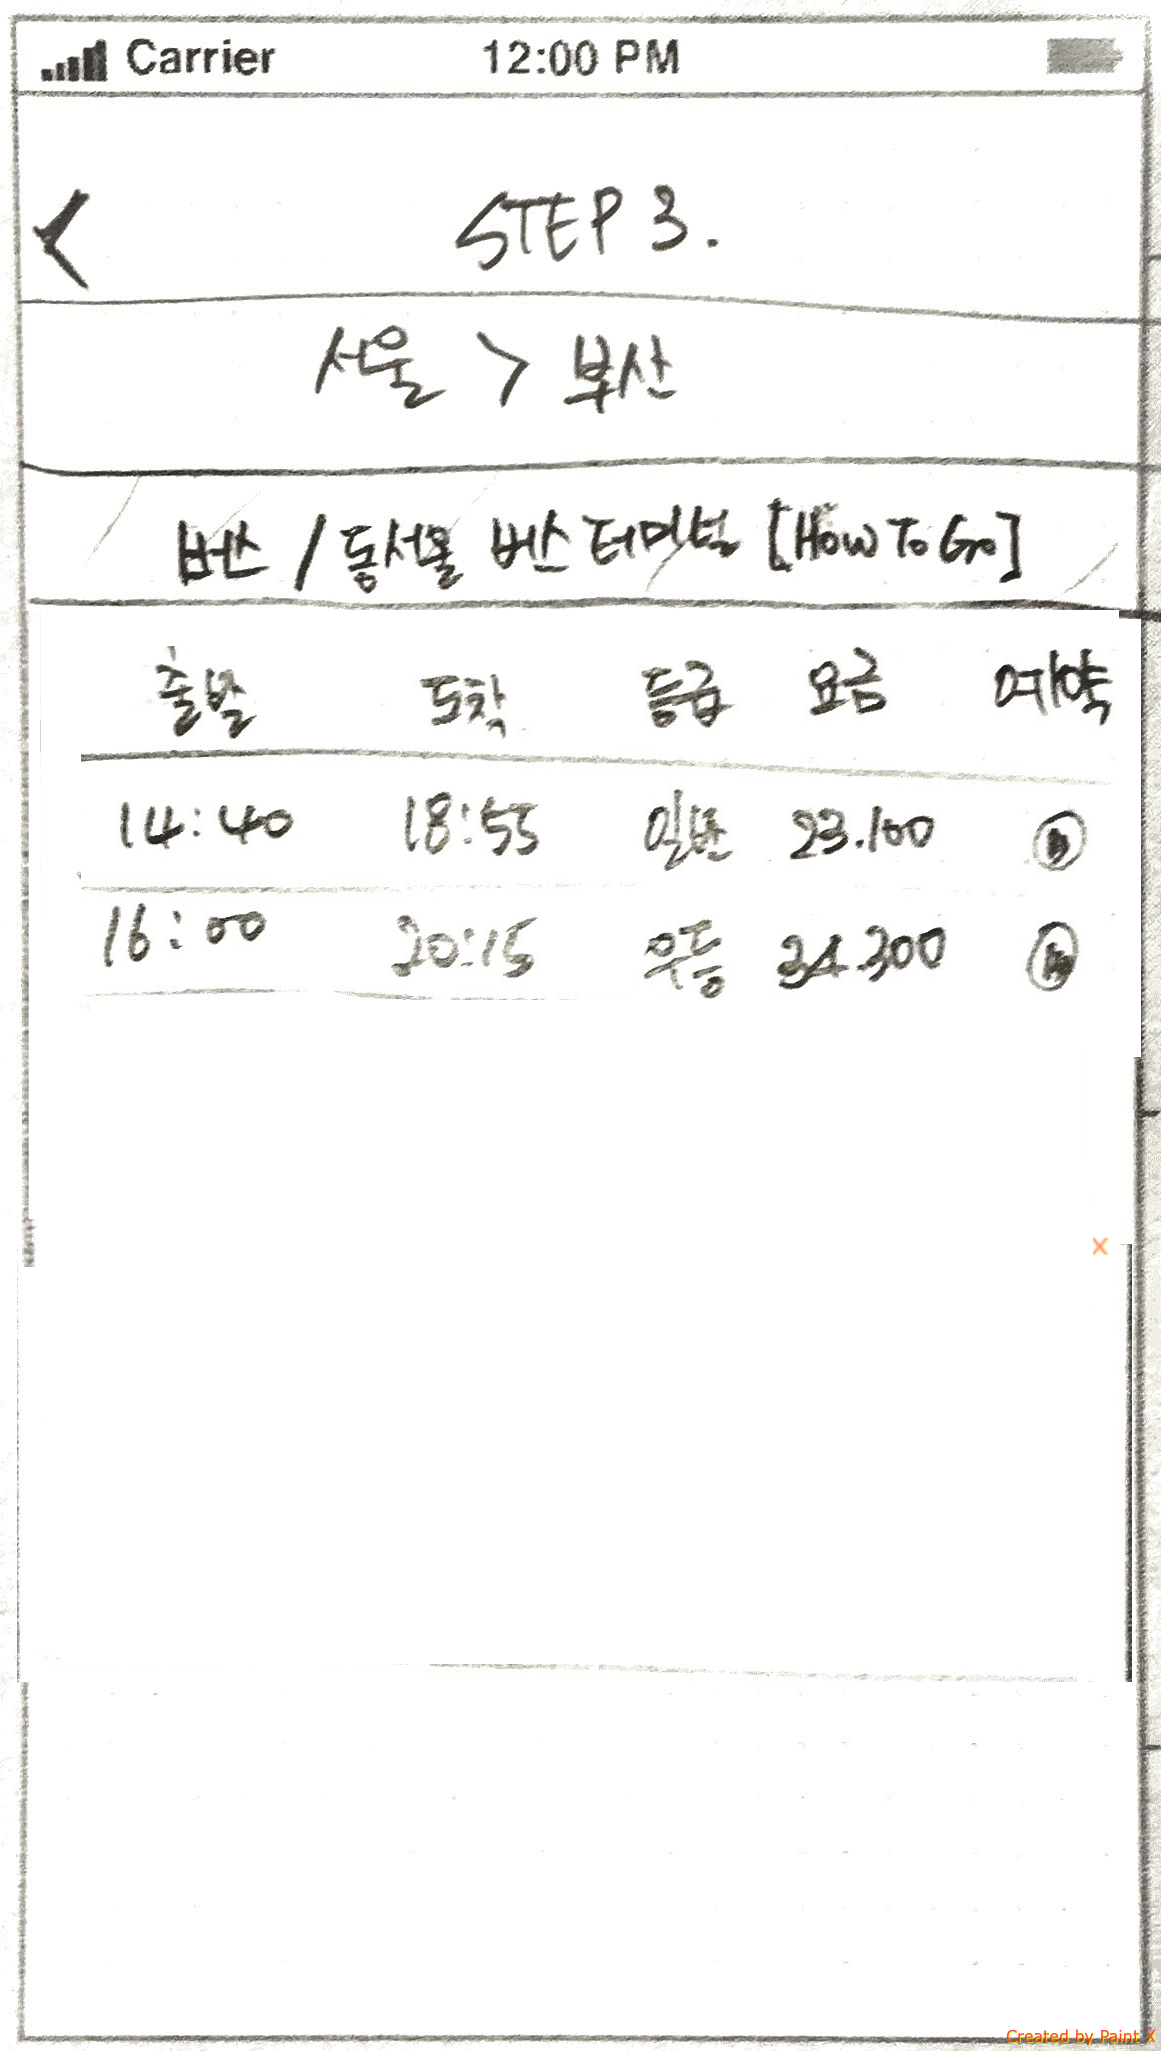 Carrier 12:00 PM
< STEP 3.
서울 > 부산
버스 / 동서울 버스터미널 [How To Go]
출발 도착 등급 요금 예약
14:40 18:55 일반 23.100
16:00 20:15 우등 34.300
x
Created by Paint X